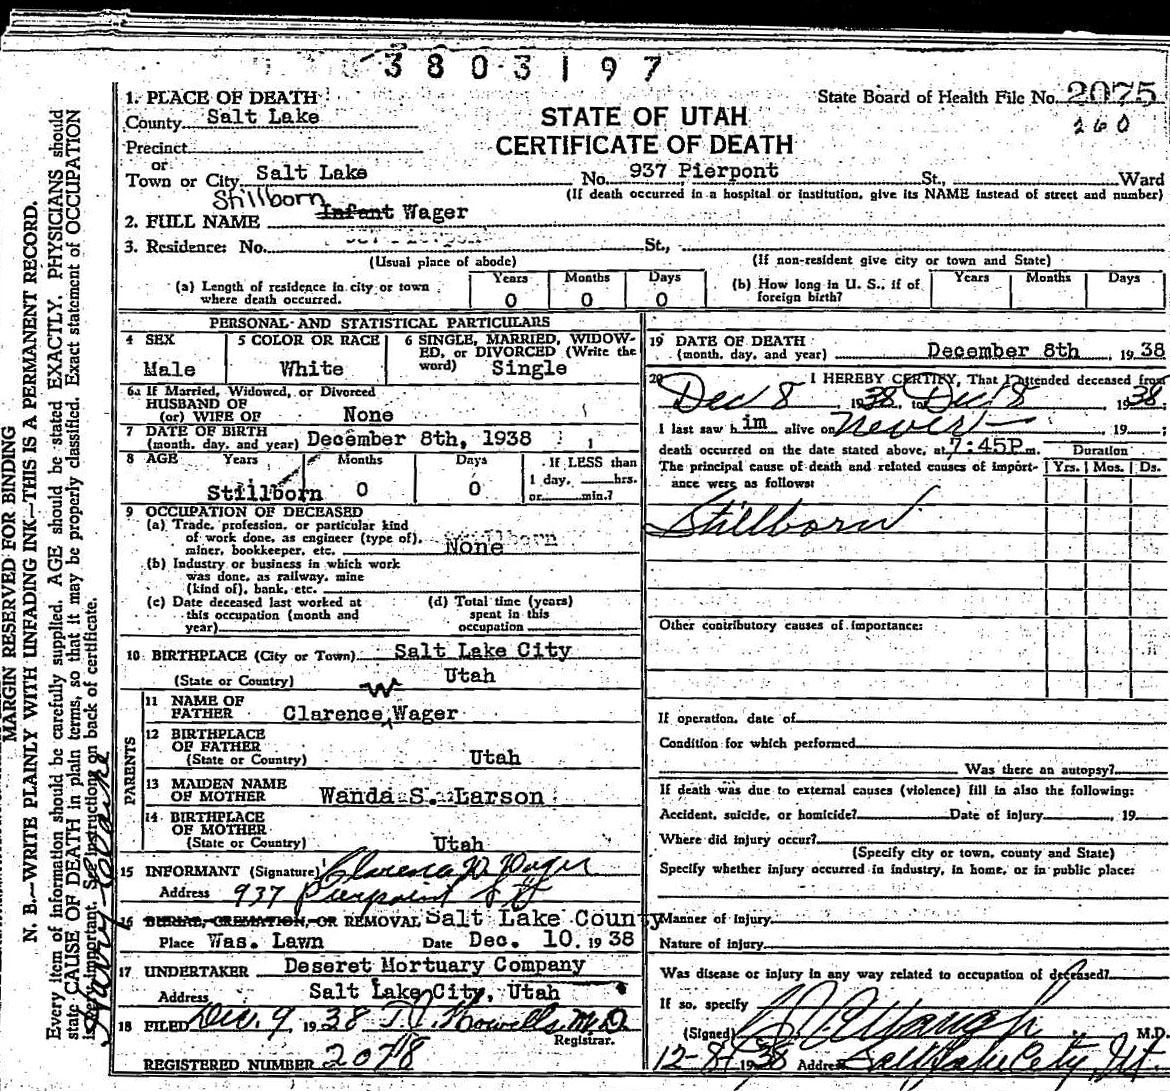 3803197
1. PLACE OF DEATH
State Board of Health File No. 2075
260
County Salt Lake
STATE OF UTAH
CERTIFICATE OF DEATH
Precinct
or
Town or City Salt Lake No. 937 Pierpont St., Ward
(If death occurred in a hospital or institution, give its NAME instead of street and number)
Stillborn
2. FULL NAME Infant Wager
3. Residence: No. St.,
(Usual place of abode) (If non-resident give city or town and State)
(a) Length of residence in city or town where death occurred. Years 0 Months 0 Days 0
(b) How long in U. S., if of foreign birth? Years Months Days
PERSONAL AND STATISTICAL PARTICULARS
4 SEX Male
5 COLOR OR RACE White
6 SINGLE, MARRIED, WIDOWED, or DIVORCED (Write the word) Single
6a If Married, Widowed, or Divorced
HUSBAND OF
(or) WIFE OF None
7 DATE OF BIRTH
(month, day, and year) December 8th, 1938
8 AGE Years Stillborn Months 0 Days 0 If LESS than 1 day, hrs. or min.?
9 OCCUPATION OF DECEASED
(a) Trade, profession, or particular kind
of work done, as engineer (type of),
miner, bookkeeper, etc. None
(b) Industry or business in which work
was done, as railway, mine
(kind of), bank, etc.
(c) Date deceased last worked at
this occupation (month and
year)
(d) Total time (years)
spent in this
occupation
10 BIRTHPLACE (City or Town) Salt Lake City
(State or Country) Utah
W
PARENTS
11 NAME OF
FATHER Clarence Wager
12 BIRTHPLACE
OF FATHER
(State or Country) Utah
13 MAIDEN NAME
OF MOTHER Wanda S. Larson
14 BIRTHPLACE
OF MOTHER
(State or Country) Utah
15 INFORMANT (Signature) Clarence W Wager
Address 937 Pierpoint St
16 BURIAL, CREMATION, OR REMOVAL Salt Lake County
Place Was. Lawn Date Dec. 10, 1938
17 UNDERTAKER Deseret Mortuary Company
Address Salt Lake City, Utah
18 FILED Dec. 9 1938 T. J. Howells M.D.
Registrar.
REGISTERED NUMBER 2078
19 DATE OF DEATH
(month, day, and year) December 8th, 1938
20 I HEREBY CERTIFY, That I attended deceased from
Dec 8 1938, to Dec 8 1938.
I last saw him alive on never 19 ;
death occurred on the date stated above, at 7:45P m.
The principal cause of death and related causes of importance were as follows:
Duration
Yrs. Mos. Ds.
Stillborn
Other contributory causes of importance:
If operation, date of
Condition for which performed
Was there an autopsy?
If death was due to external causes (violence) fill in also the following:
Accident, suicide, or homicide? Date of injury , 19
Where did injury occur?
(Specify city or town, county and State)
Specify whether injury occurred in industry, in home, or in public place:
Manner of injury
Nature of injury
Was disease or injury in any way related to occupation of deceased?
If so, specify
(Signed) M.D.
12-8-1938 Address Salt Lake City, Ut.
MARGIN RESERVED FOR BINDING
N. B.—WRITE PLAINLY WITH UNFADING INK—THIS IS A PERMANENT RECORD.
Every item of information should be carefully supplied. AGE should be stated EXACTLY. PHYSICIANS should
state CAUSE OF DEATH in plain terms, so that it may be properly classified. Exact statement of OCCUPATION
important. See instructions on back of certificate.